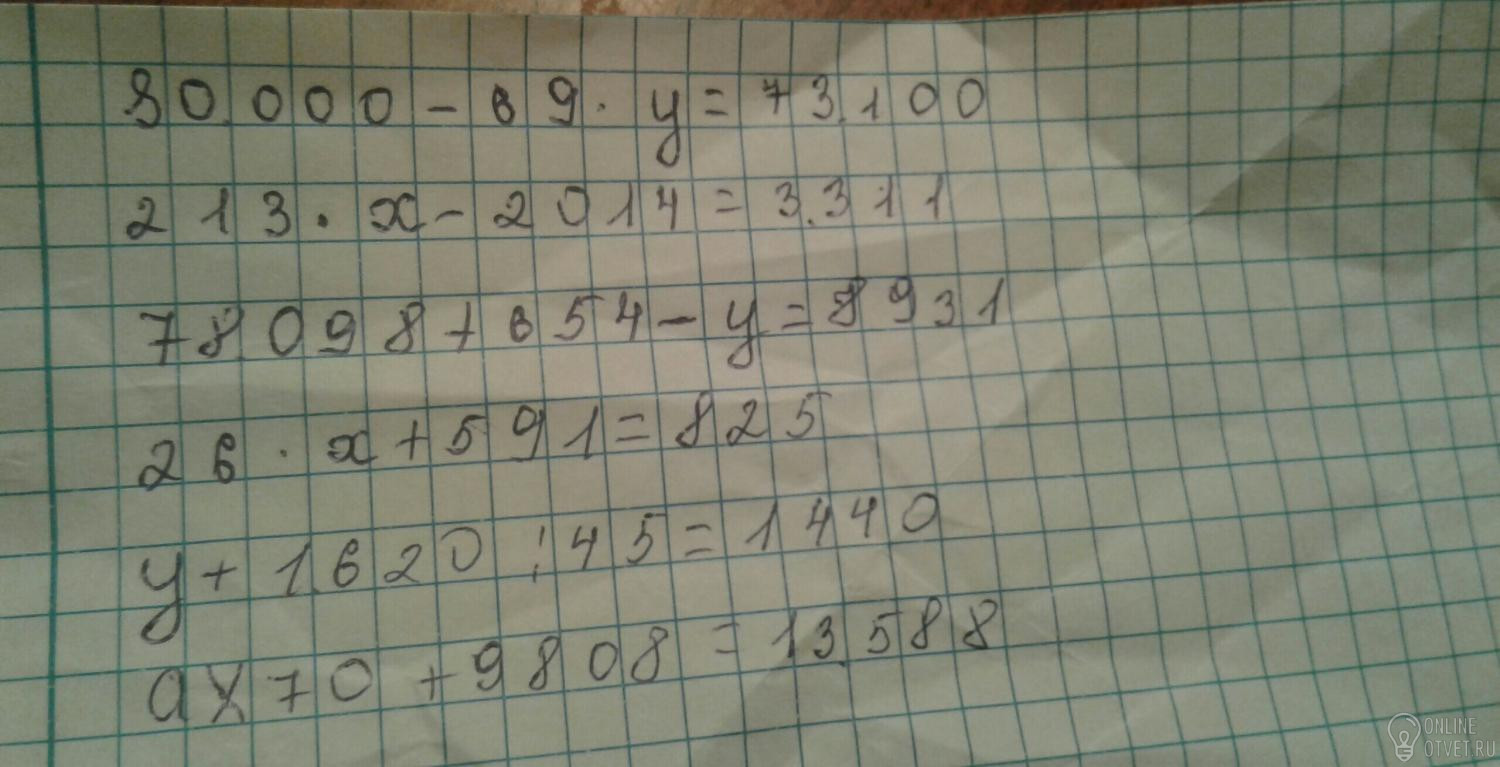 80.000 - 69 · y = 73.100
213 · x - 2014 = 3.311
78.098 + 654 - y = 8931
26 · x + 591 = 825
y + 1.620 : 45 = 1440
a x 70 + 9808 = 13.588
ONLINE
OTVET.RU